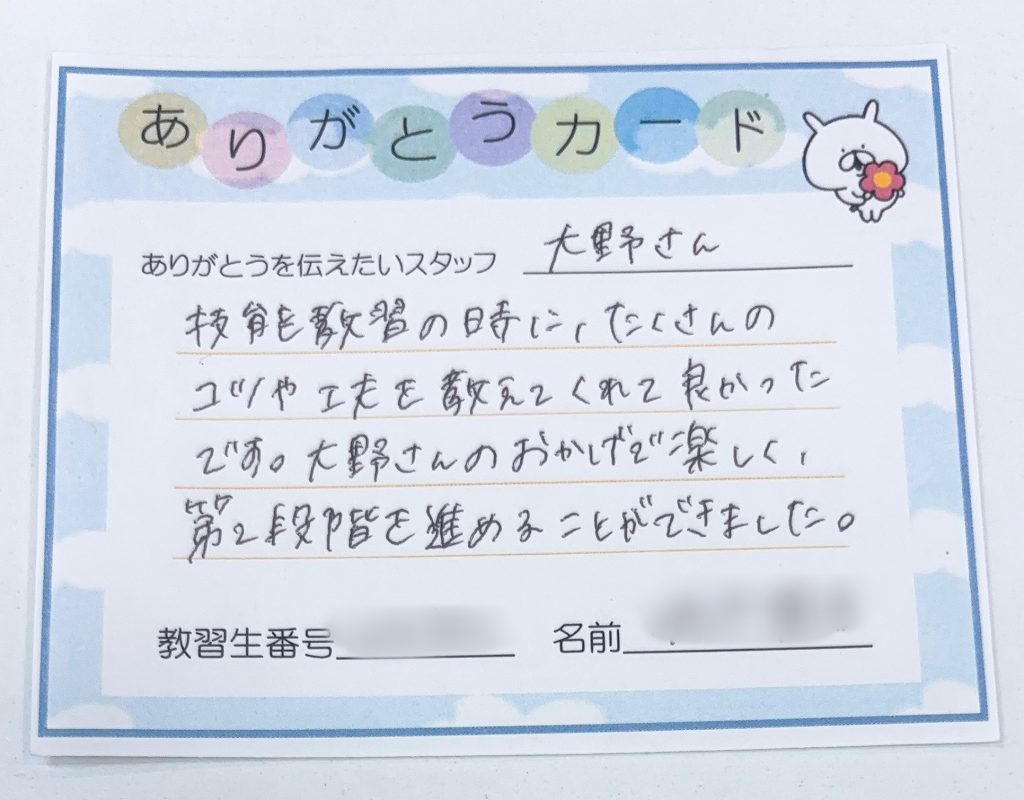 ありがとうカード
ありがとうを伝えたいスタッフ 大野さん
技能教習の時に、たくさんの
コツや工夫を教えてくれて良かった
です。大野さんのおかげで楽しく、
第2段階を進めることができました。
教習生番号
名前